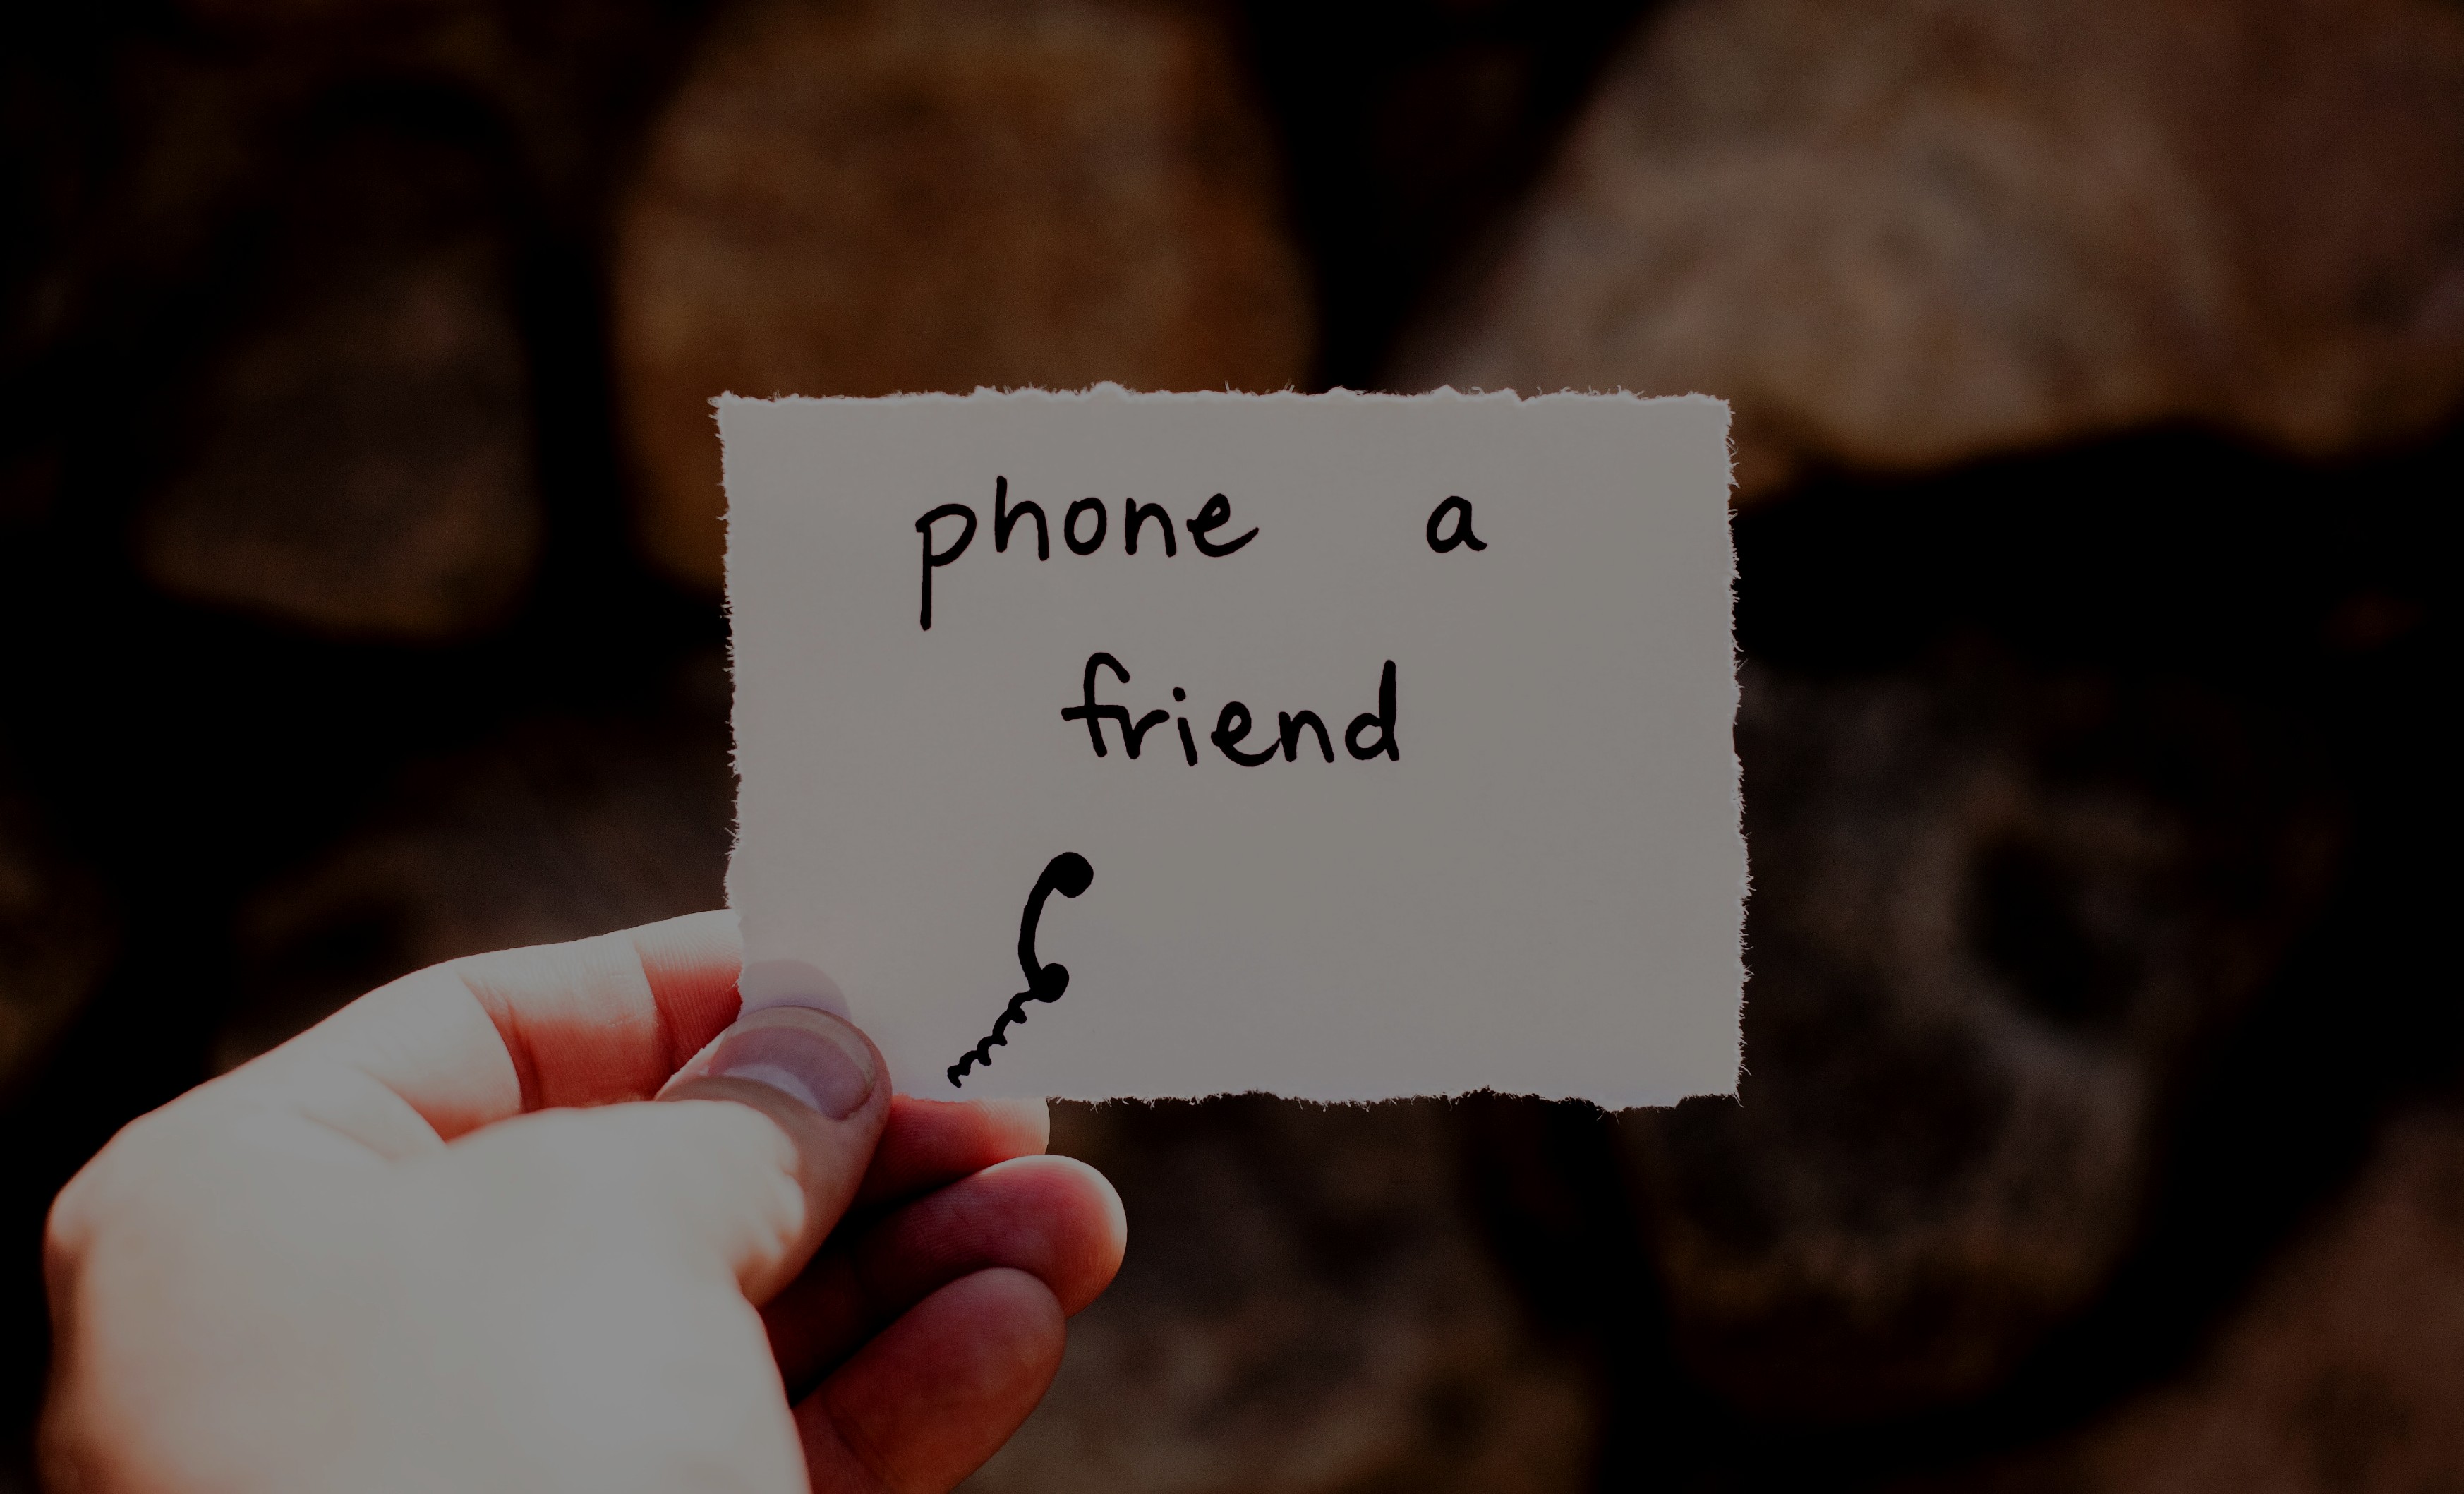 phone a
friend